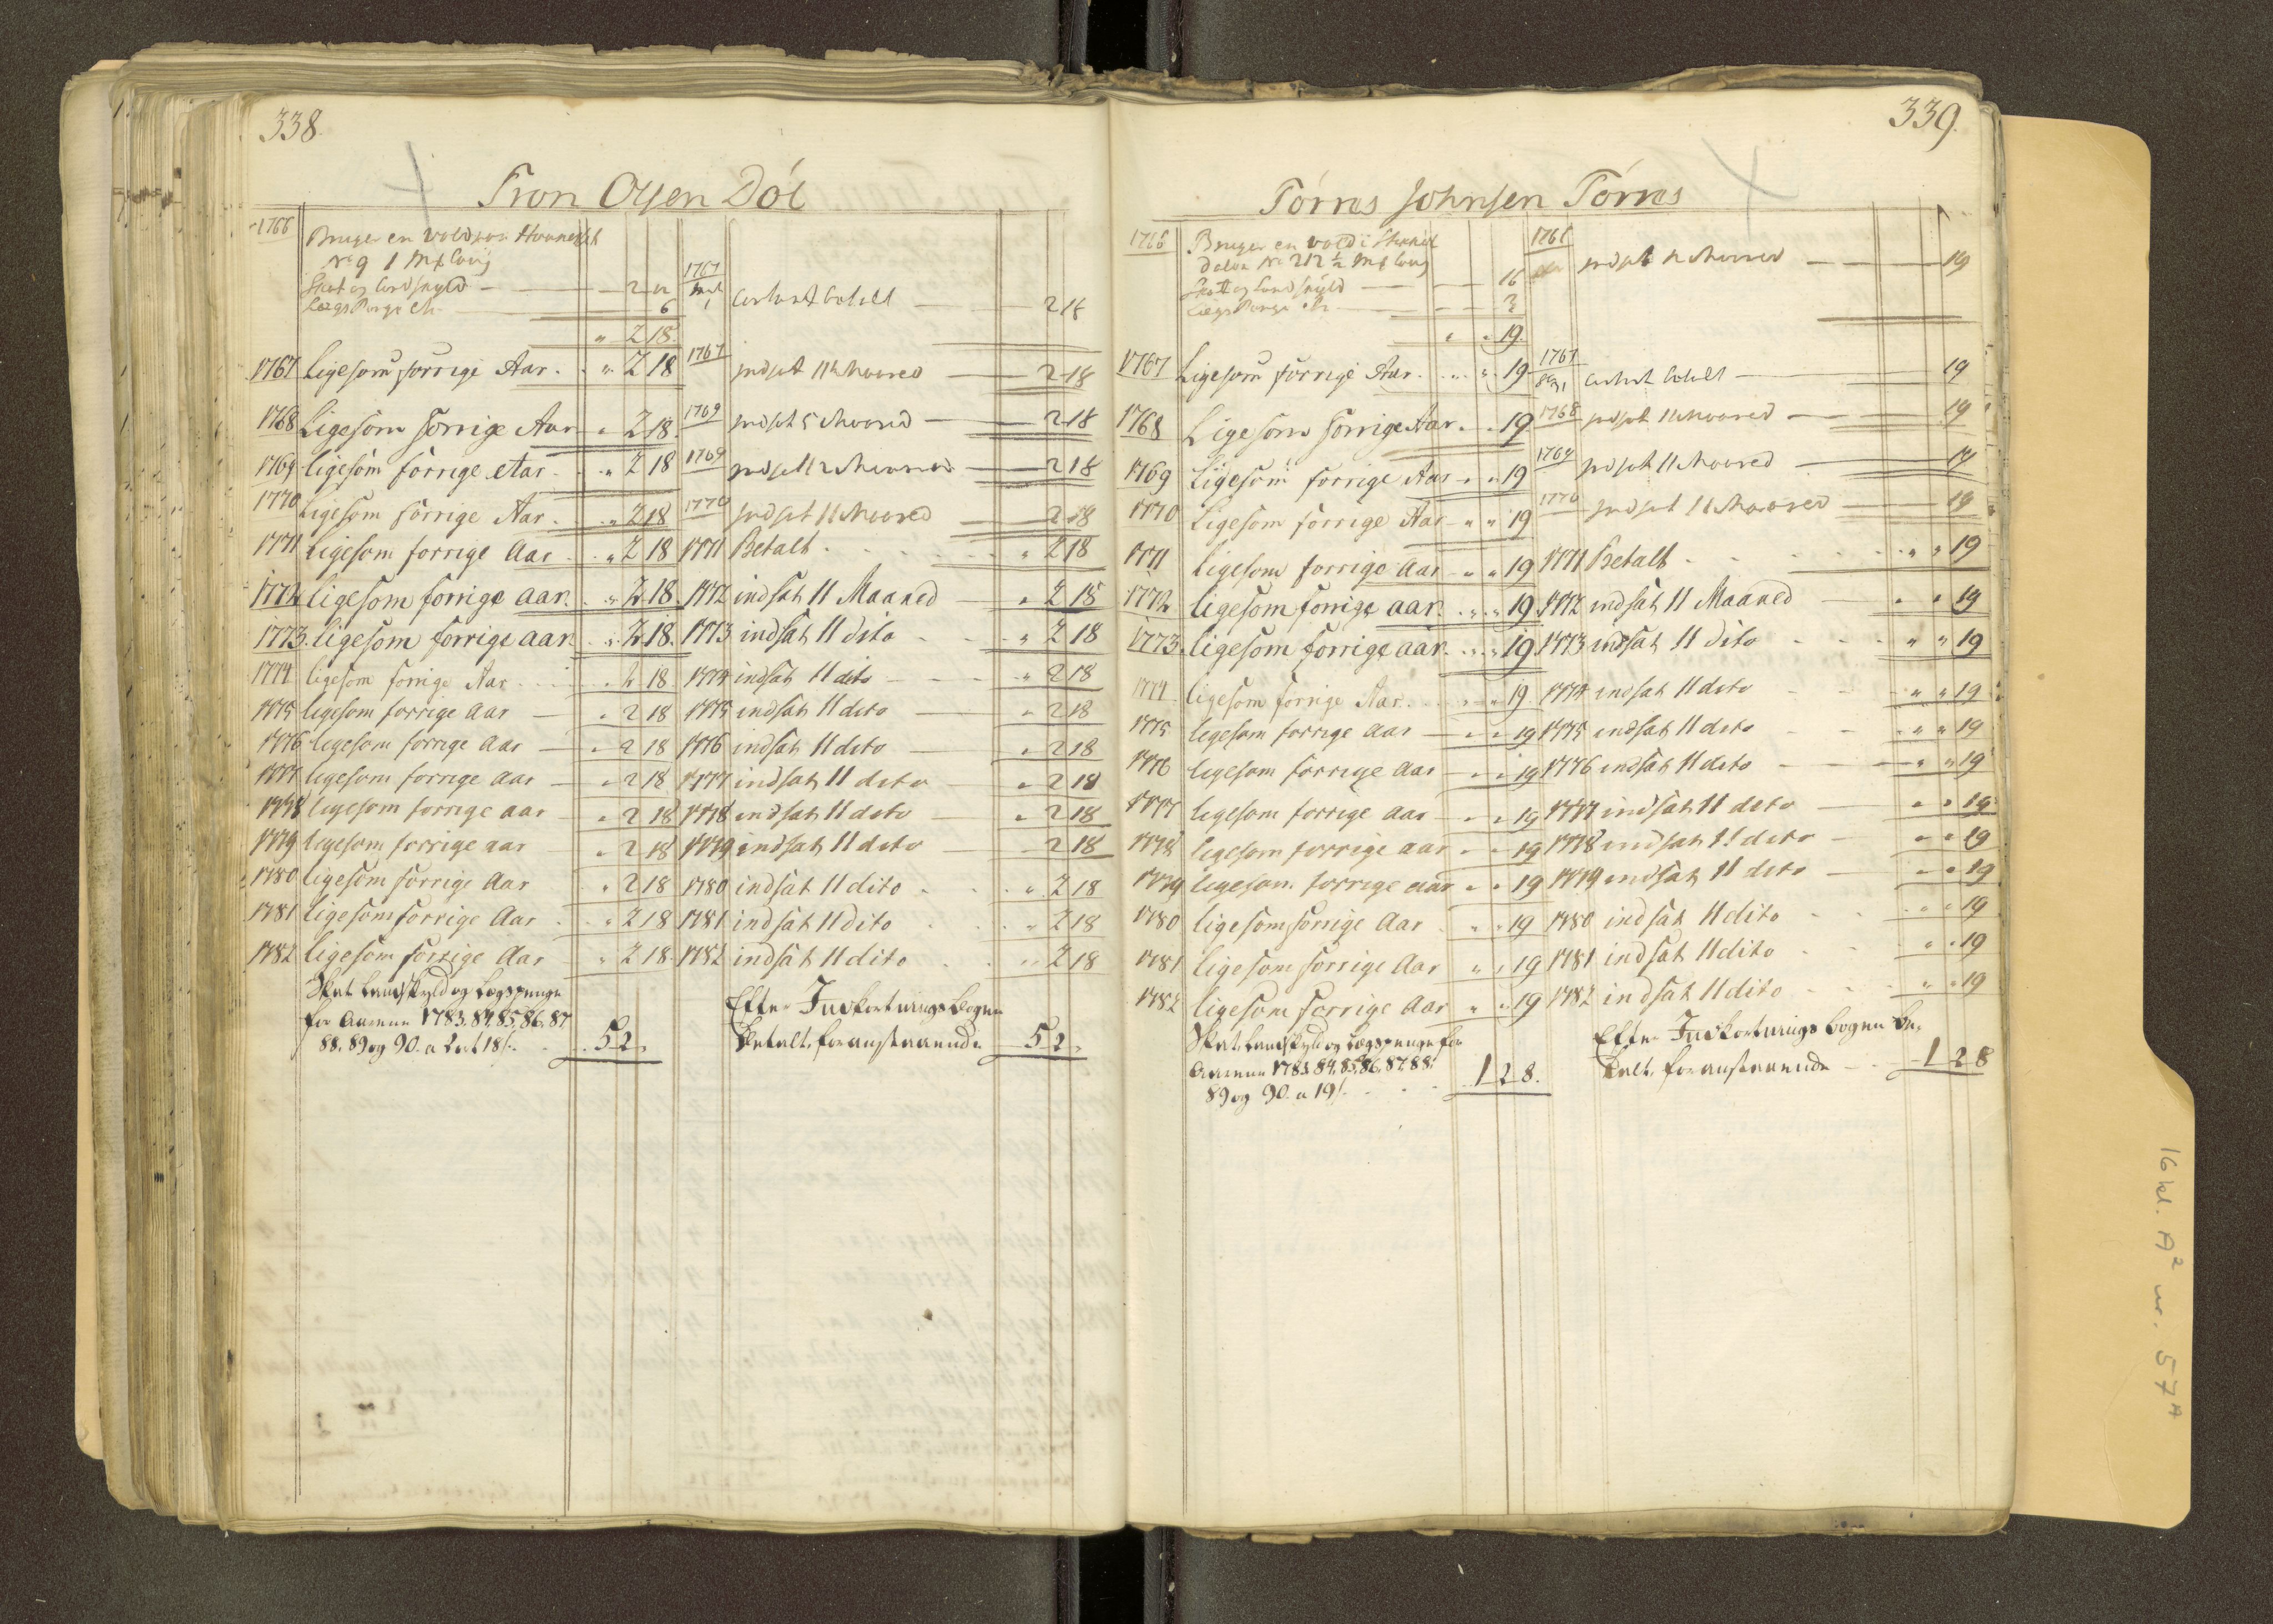 338.
Tron Olsen Döl
1766 Bruger en vold
No 9 1 Mk
Skat og Landskyld 2 12
LægsPenge 6
" 2 18.
1767 contant betalt 2 18
1767 Ligesom forrige Aar . . " 2 18
1767 indsat 11 Maaned 2 18
1768 Ligesom forrige Aar " 2 18.
1769 indsat 5 Maaned 2 18
1769 ligesom forrige Aar . . " 2 18
1769 indsat 2 18
1770 Ligesom forrige Aar . . " 2 18
1770 indsat 11 Maaned 2 18
1771 ligesom forrige Aar . . " 2 18
1771 Betalt . . . . " 2 18
1772 ligesom forrige aar. . " 2 18.
1772 indsat 11 Maaned " 2 18
1773. ligesom forrige aar. . " 2 18.
1773 indsat 11 dito . . " 2 18
1774 ligesom forrige Aar . . " 2 18
1774 indsat 11 dito - - " 2 18
1775 ligesom forrige Aar " 2 18
1775 indsat 11 dito " 2 18
1776 ligesom forrige Aar " 2 18
1776 indsat 11 dito " 2 18
1777 ligesom forrige Aar " 2 18
1777 indsat 11 dito " 2 18
1778 ligesom forrige aar " 2 18
1778 indsat 11 dito " 2 18
1779 ligesom forrige aar " 2 18
1779 indsat 11 dito 2 18
1780 ligesom forrige Aar " 2 18
1780 indsat 11 dito . . " 2 18
1781 ligesom forrige Aar . . " 2 18
1781 indsat 11 dito . . " 2 18
1782 ligesom forrige Aar " 2 18
1782 indsat 11 dito . . " 2 18
Skat Landskyld og Lægspenge
for Aarene 1783, 84, 85, 86, 87
88, 89 og 90. a 2 ort 18 s. . . 5 2.
Efter Indkortnings Bogen
betalt, foranstaaende 5 2.
339.
Törres Johnsen Törres
1766 Bruger en vold i
dalen No 21 2 1/2 Mk
Skatt og Landskyld 16
LægsPenge 3
" " 19.
indsat 11 Maaned 19
1767 Ligesom forrige Aar . . " " 19
1767 contant betalt 19
1768 Ligesom forrige Aar . . 19
1768 indsat 11 Maaned 19
1769 Ligesom forrige Aar " " 19
1769 indsat 11 Maaned 19
1770 Ligesom forrige Aar " " 19
1770 indsat 11 Maaned 19
1771 ligesom forrige Aar " " 19
1771 Betalt . . . . " " 19
1772 ligesom forrige aar. . " " 19.
1772 indsat 11 Maaned " " 19
1773. ligesom forrige aar. . " " 19
1773 indsat 11 dito . . " " 19
1774 ligesom forrige Aar . . " " 19.
1774 indsat 11 dito " " 19
1775 ligesom forrige Aar " " 19
1775 indsat 11 dito " " 19
1776 ligesom forrige Aar " " 19
1776 indsat 11 dito " " 19
1777 ligesom forrige Aar " " 19
1777 indsat 11 dito " " 19
1778 ligesom forrige aar " " 19
1778 indsat 11 dito " " 19
1779 ligesom forrige aar " " 19
1779 indsat 11 dito " " 19
1780 ligesom forrige Aar . " " 19
1780 indsat 11 dito . . " " 19
1781 ligesom forrige Aar " " 19
1781 indsat 11 dito . . " " 19
1782 ligesom forrige Aar " " 19
1782 indsat 11 dito . . " " 19
Skat, Landskyld og Lægspenge for
Aarene 1783, 84, 85, 86, 87, 88,
89 og 90. a 19 s. . . 1 2 8.
Efter Indkortnings bogen be,
talt, foranstaaende 1 2 8
16 kl. A2 nr. 57A